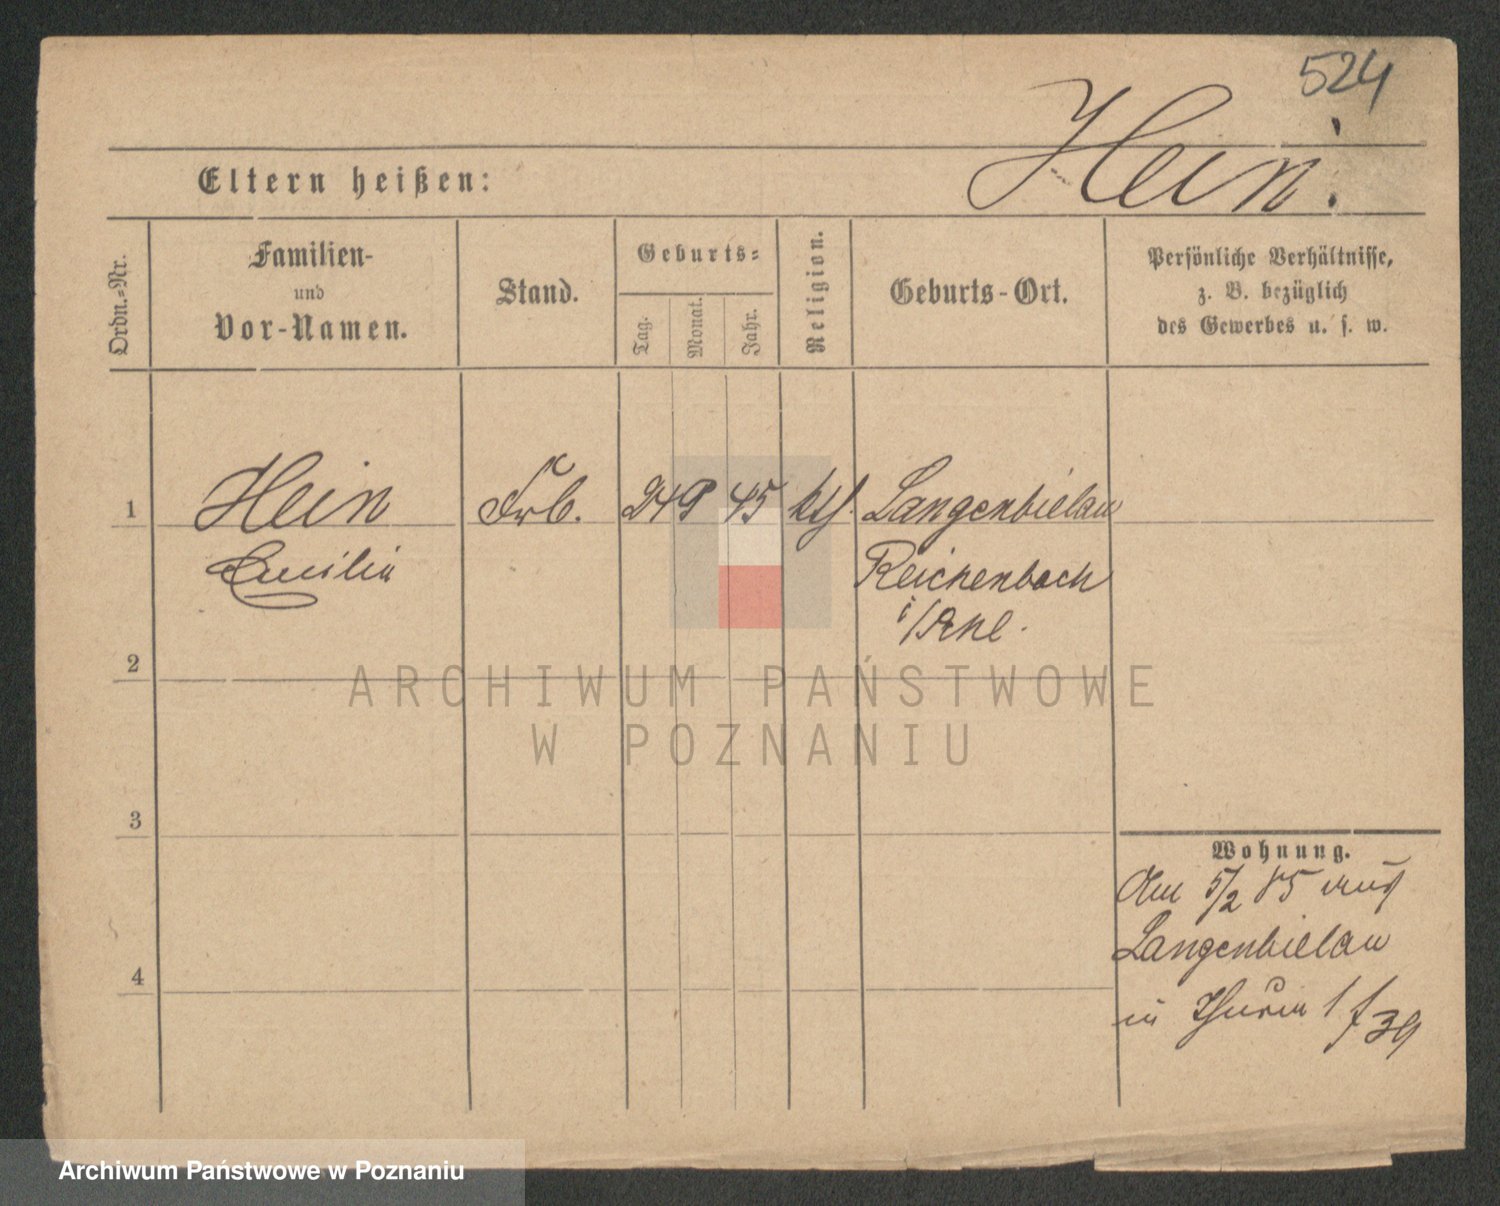 524
Hein.
Eltern heißen:
Ordn.=Nr.
Familien-
und
Vor-Namen.
Stand.
Geburts=
Tag.
Monat.
Jahr.
Religion.
Geburts-Ort.
Persönliche Verhältnisse,
z. B. bezüglich
des Gewerbes u. s. w.
1
Hein
24 9 45 kth. Langenbielau
Emilie
Reichenbach
2
3
4
Wohnung.
Am 5/2 85 aus
Langenbielau
in Thurm
39
ARCHIWUM PAŃSTWOWE
W POZNANIU
Archiwum Państwowe w Poznaniu